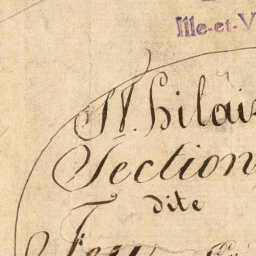 Ille-et-V
St. hilai
Section
dite